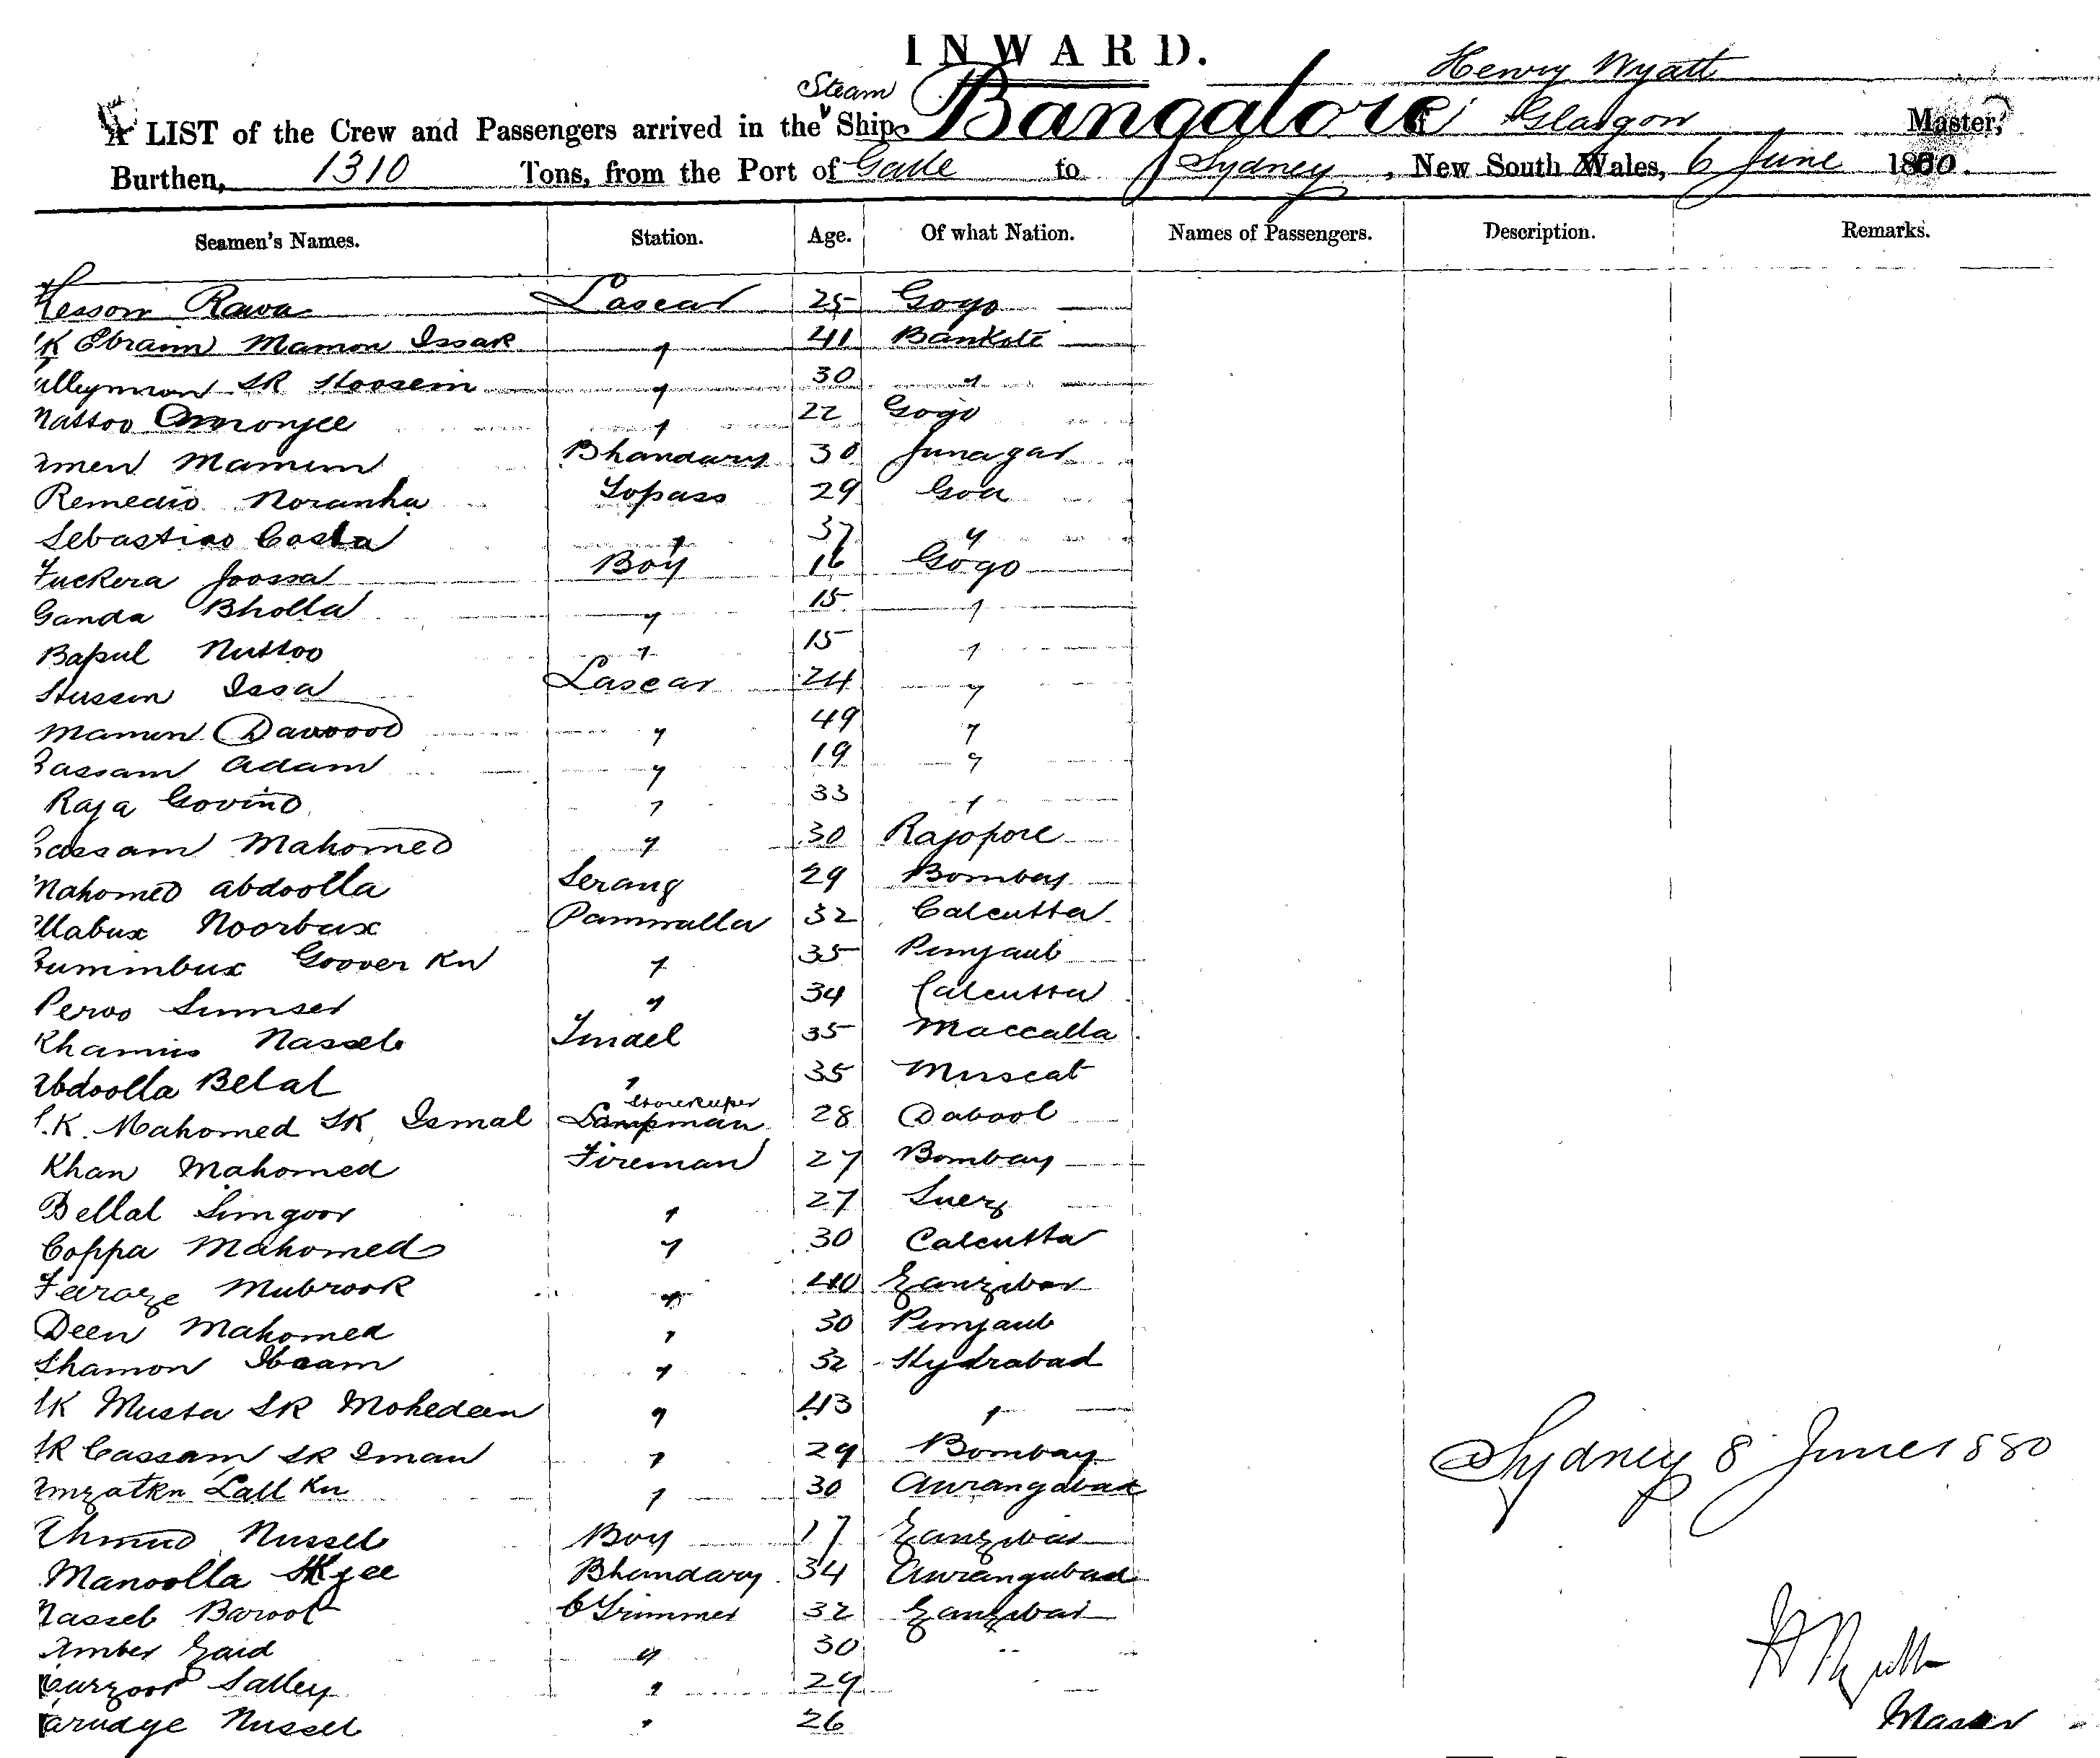 INWARD.
Henry Wyatt
Steam
A LIST of the Crew and Passengers arrived in the Ship Bangalore of Glasgow Master,
Burthen, 1310 Tons, from the Port of Galle to Sydney, New South Wales, 6 June 1880.
Seamen's Names. Station. Age. Of what Nation. Names of Passengers. Description. Remarks.
Kessow Rawa Lascar 25 Gogo
SK Ebraim Mamon Issak " 41 Bankote
ulleymon SK Hoosein " 30 "
Nattoo Amonjee " 22 Gogo
amen Mamun Bhandary 30 Junagar
Remedio Noranha Topass 29 Goa
Sebastiao Costa " 37 "
Fuckera Joossa Boy 16 Gogo
Ganda Bholla " 15 "
Bapul Nuttoo " 15 "
Hussen Issa Lascar 24 "
Mamen Dawood " 49 "
Cassam Adam " 19 "
Raja Govind " 33 "
Cassam Mahomed " 30 Rajopore
Mahomed Abdoolla Serang 29 Bombay
llabux Noorbux Pannwalla 32 Calcutta
umimbux Goover Kn " 35 Punjaub
Peroo Sumser " 34 Calcutta
Khamis Nasseb Tindel 35 Maccalla
Abdoolla Belal " 35 Muscat
Storekeeper
S.K. Mahomed SK Ismal Lampman 28 Dabool
Khan Mahomed Fireman 27 Bombay
Bellal Simgoor " 27 Suez
Coppa Mahomed " 30 Calcutta
Feroze Mubrook " 40 Zanzibar
Deen Mahomed " 30 Punjaub
Shamon Ibaam " 32 Hydrabad
SK Musta SK Mohedeen " 43 "
SK Cassam SK Iman " 29 Bombay
Sydney 8 June 1880
mzatkn Lall Kn " 30 Aurangabad
Ahmud Nusseb Boy 17 Zanzibar
Manoolla SKjee Bhandary 34 Aurangabad
Nasseb Baroot C Trimmer 32 Zanzibar
Amber Zaid " 30 "
urzoor Salley " 29
arudye Nusseb " 26
H Wyatt
Master